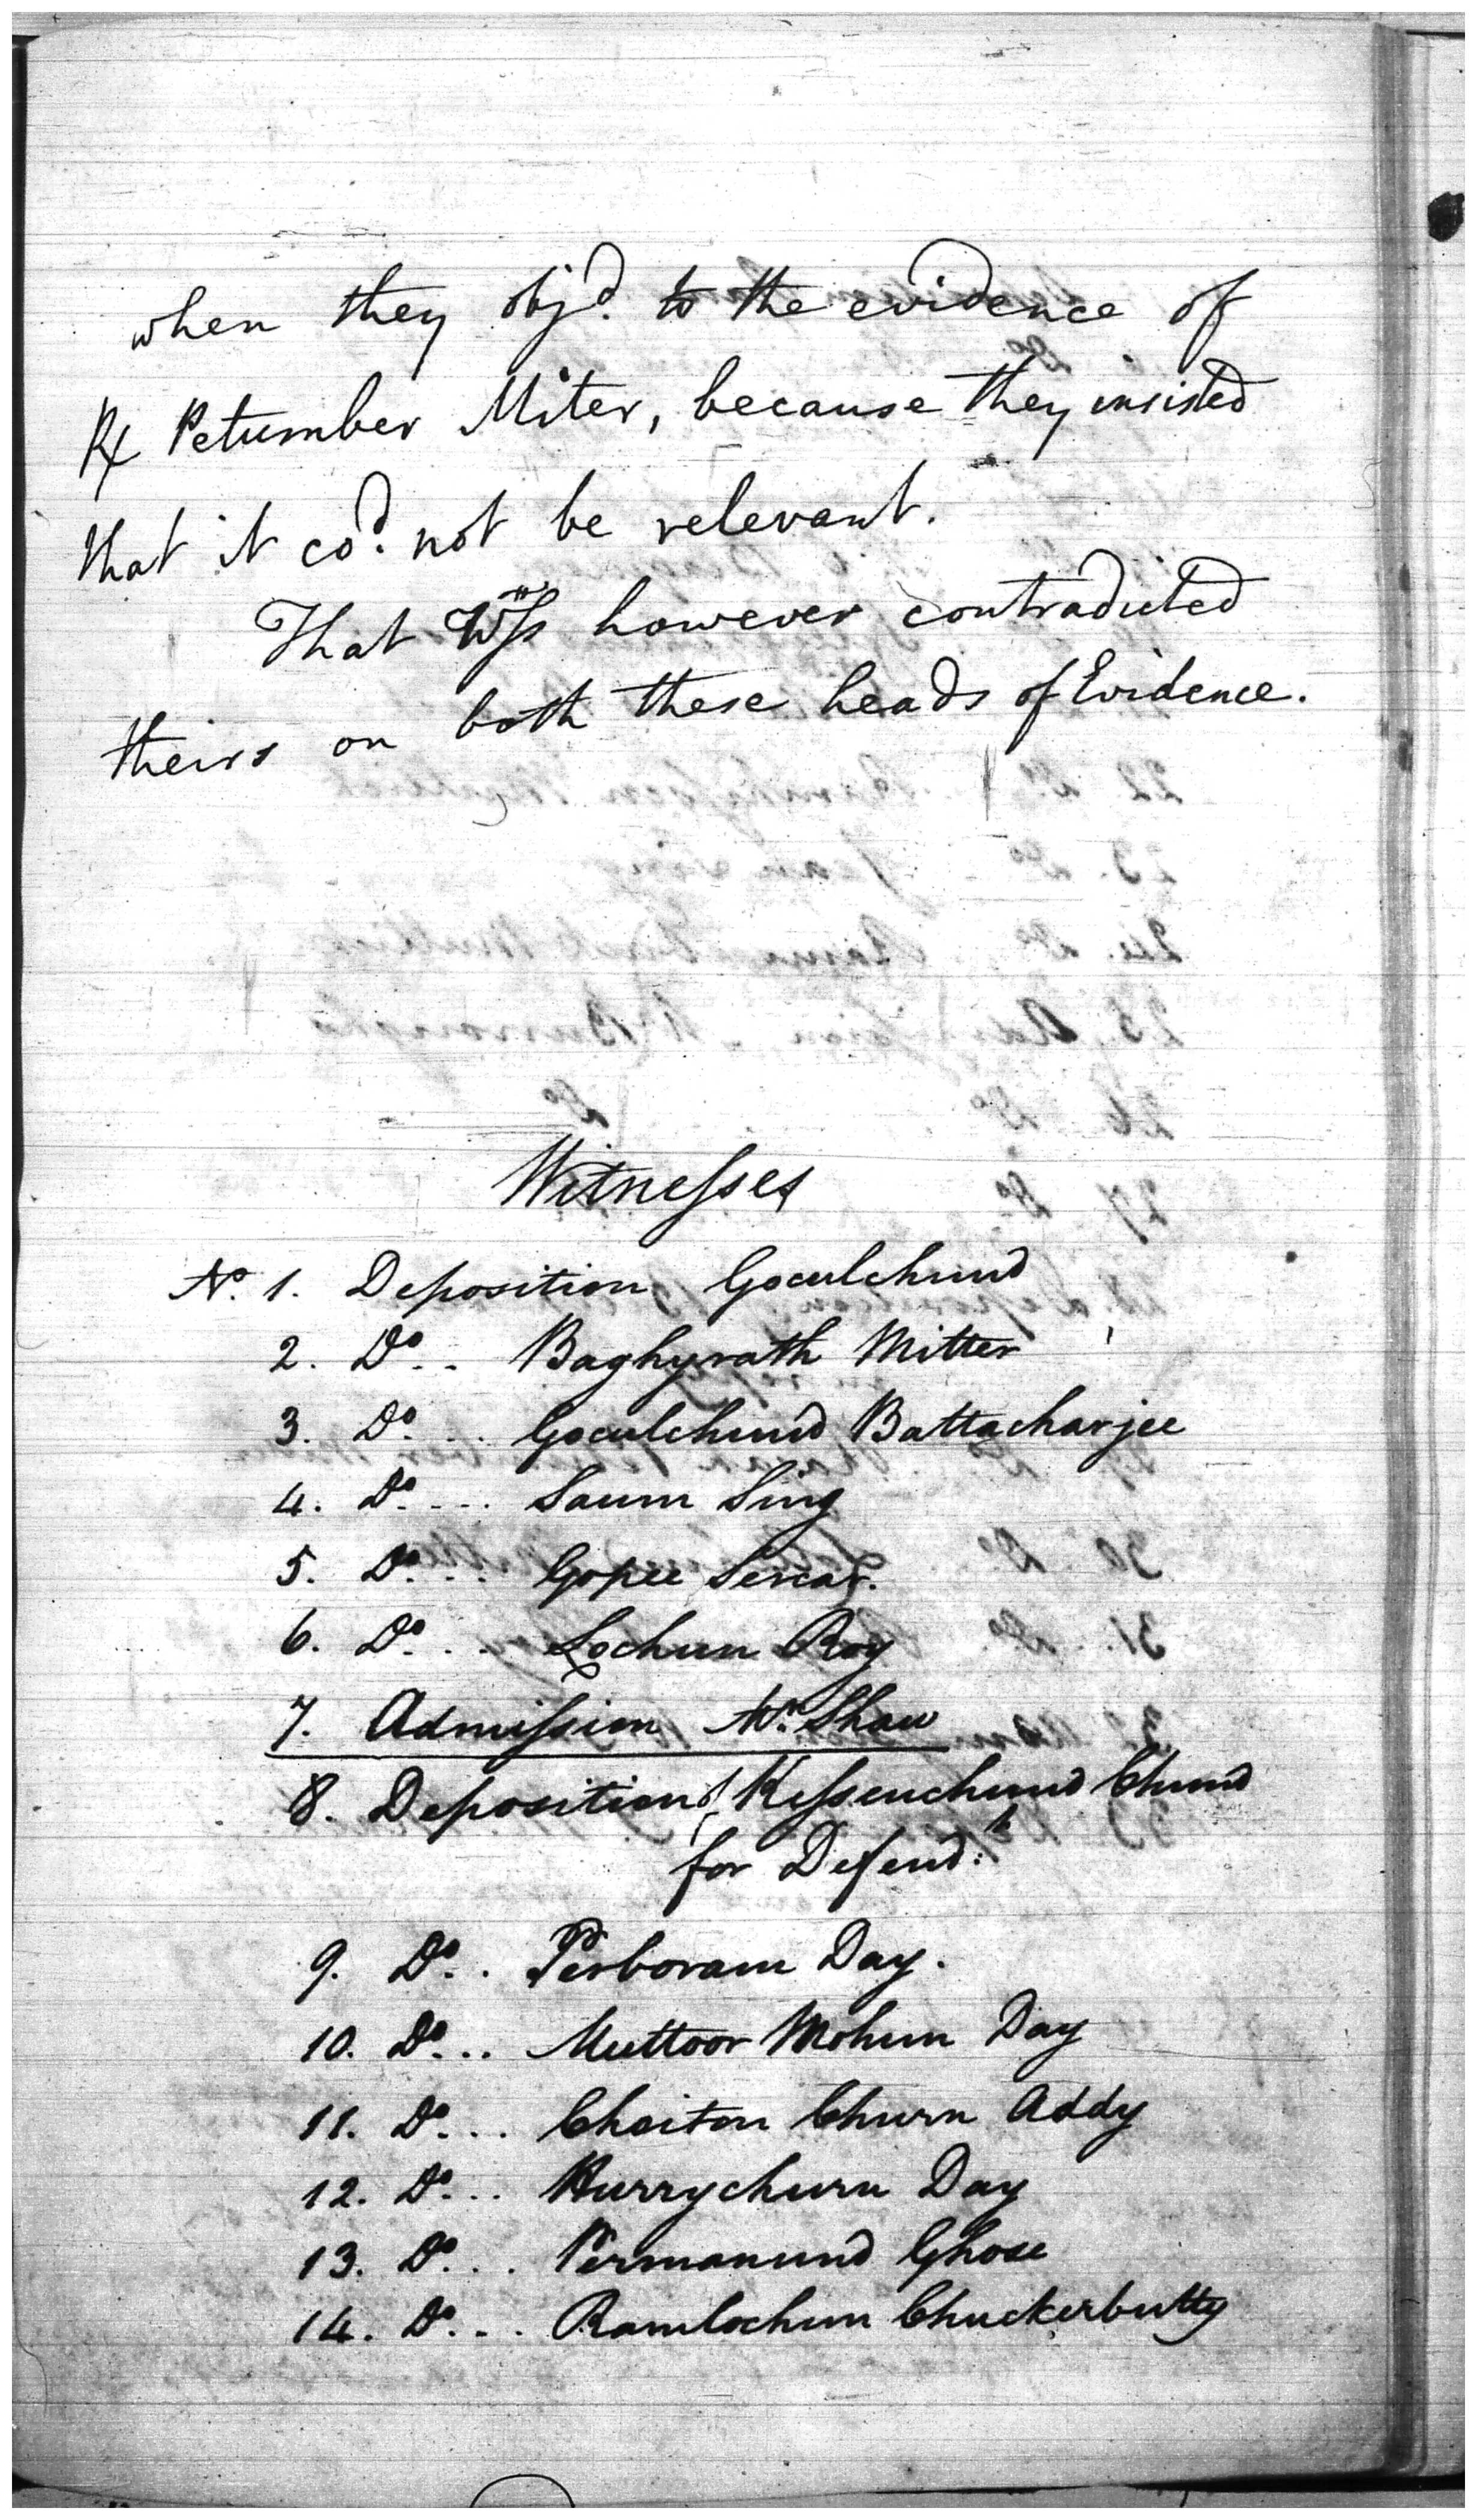 when they objd. to the evidence of
Rx Petumber Miter, because they insisted
that it cod. not be relevant.
That Wss however contradicted
theirs on both these heads of Evidence.
Witnesses
No. 1. Deposition Goculchund
2. Do.. Baghyrath Mitter
3. Do... Goculchund Battacharjee
4. Do... Saum Sing
5. Do... Gopee Sercar.
6. Do... Lochun Roy
7. Admission Mr. Shaw
8. Deposition of Kissenchund Chund
for Defend:ts
9. Do.. Perboram Day.
10. Do... Muttoor Mohun Day
11. Do... Choiton Churn Addy
12. Do... Hurrychurn Day
13. Do... Permanund Ghose
14. Do... Ramlochun Chuckerbutty